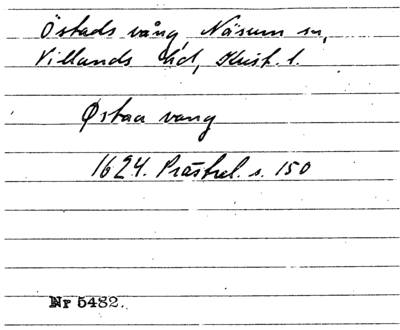 Östads vång, Näsum sn,
Villands hd, Krist. l.
Østaa vang
1624. Prästrel. s. 150
Nr 5482.